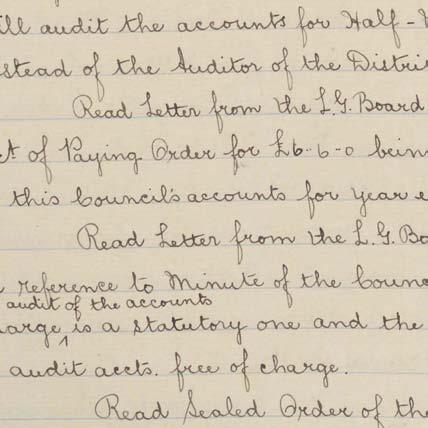 ill audit the accounts for Half-
stead of the Auditor of the Distri
Read Letter from the L.G. Board
ct of Paying Order for £6-6-0 bein
this Council's accounts for year e
Read Letter from the L.G. Bo
reference to Minute of the Counc
audit of the accounts
harge ^ is a statutory one and the
audit accts. free of charge.
Read Sealed Order of the